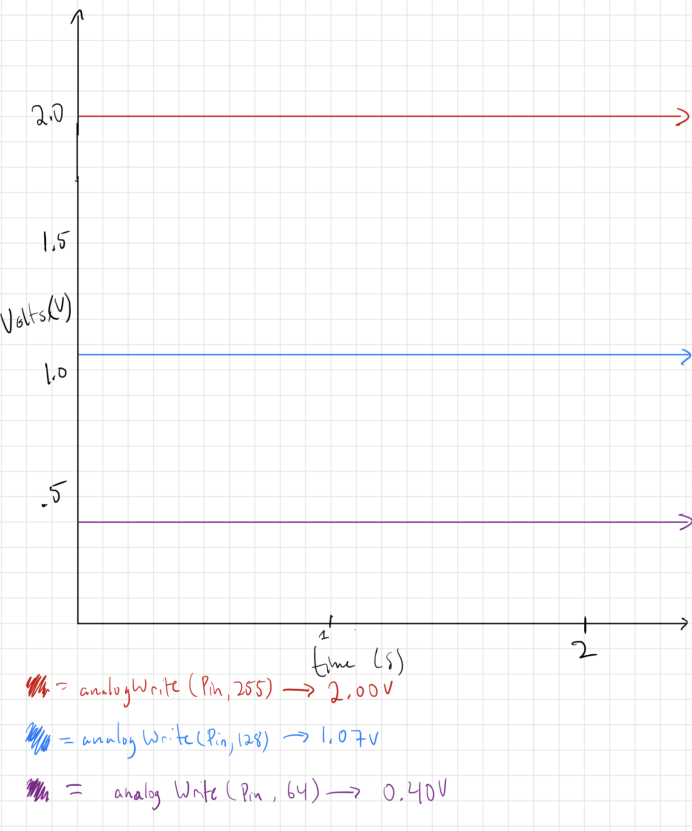 2.0
1.5
Volts(V)
1.0
.5
1
2
time (s)
= analogWrite (Pin, 255) → 2.00V
= analog Write(Pin, 128) → 1.07V
= analog Write (Pin, 64) → 0.40V